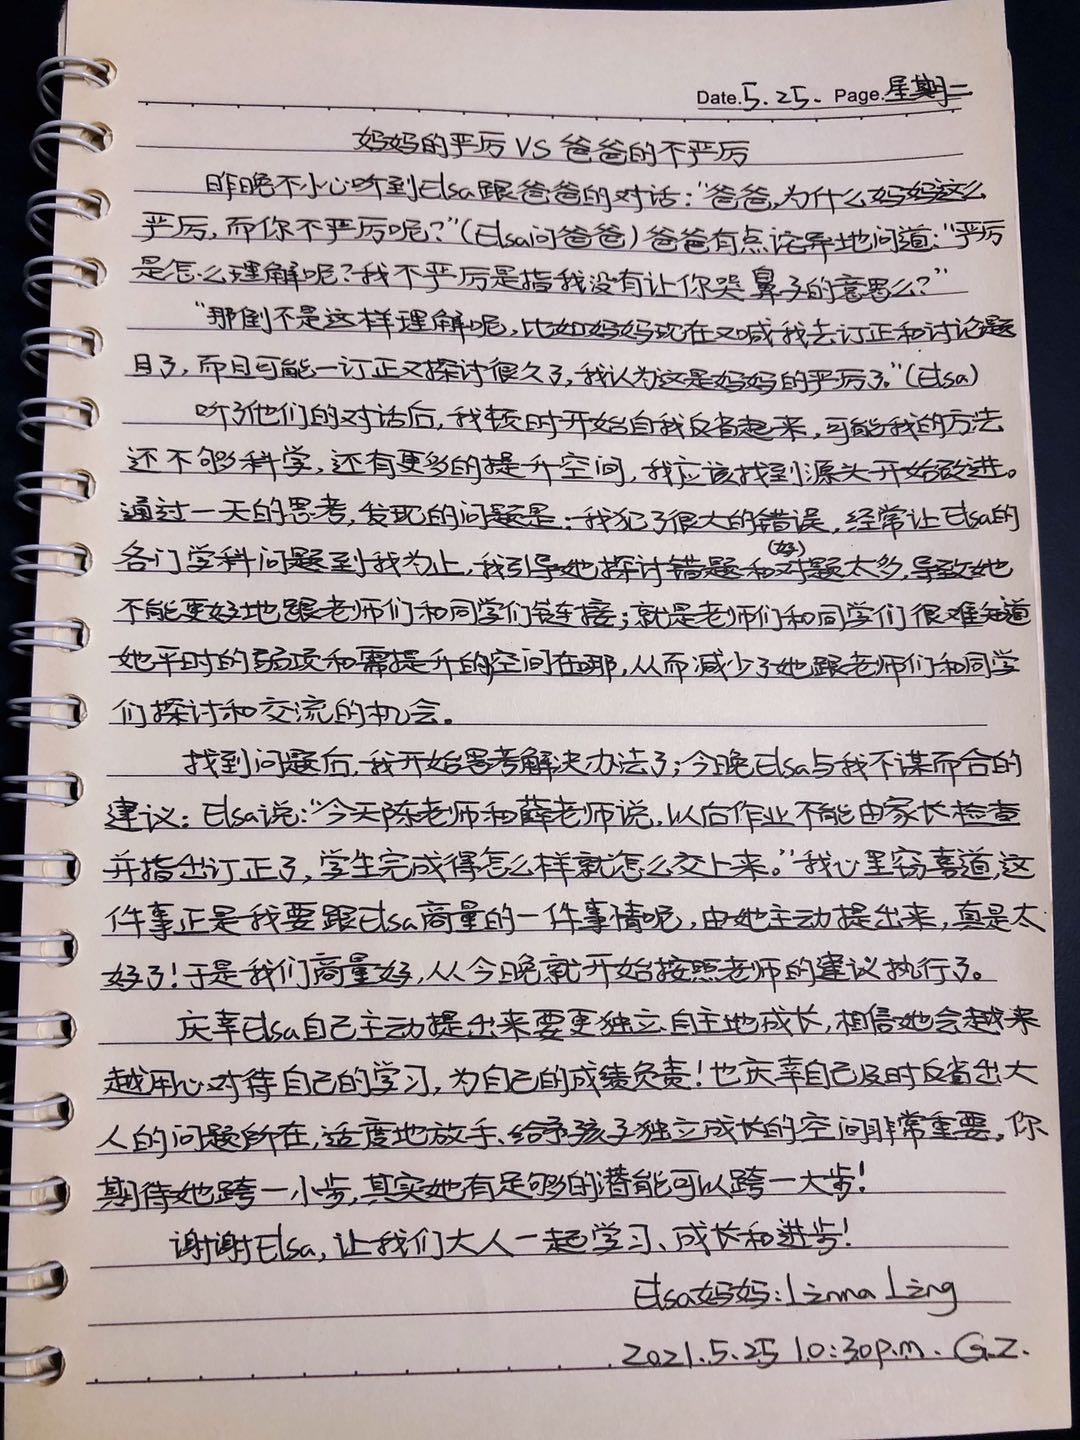 Date.5.25. Page.星期二
妈妈的严厉 VS 爸爸的不严厉
昨晚不小心听到Elsa跟爸爸的对话:"爸爸,为什么妈妈这么
严厉,而你不严厉呢?"(Elsa问爸爸)爸爸有点诧异地问道:"严厉
是怎么理解呢?我不严厉是指我没有让你哭鼻子的意思么?"
"那倒不是这样理解呢,比如妈妈现在又喊我去订正和讨论题
目了,而且可能一订正又探讨很久了,我认为这是妈妈的严厉了。"(Elsa)
听了他们的对话后,我顿时开始自我反省起来,可能我的方法
还不够科学,还有更多的提升空间,我应该找到源头开始改进。
通过一天的思考,发现的问题是:我犯了很大的错误,经常让Elsa的
各门学科问题到我为止,我引导她探讨错题和(好)对题太多,导致她
不能更好地跟老师们和同学们链接;就是老师们和同学们很难知道
她平时的弱项和需提升的空间在哪,从而减少了她跟老师们和同学
们探讨和交流的机会。
找到问题后,我开始思考解决办法了;今晚Elsa与我不谋而合的
建议:Elsa说:"今天陈老师和薛老师说,以后作业不能由家长检查
并指出订正了,学生完成得怎么样就怎么交上来。"我心里窃喜道,这
件事正是我要跟Elsa商量的一件事情呢,由她主动提出来,真是太
好了!于是我们商量好,从今晚就开始按照老师的建议执行了。
庆幸Elsa自己主动提出来要更独立自主地成长,相信她会越来
越用心对待自己的学习,为自己的成绩负责!也庆幸自己及时反省出大
人的问题所在,适度地放手、给予孩子独立成长的空间非常重要,你
期待她跨一小步,其实她有足够的潜能可以跨一大步!
谢谢Elsa,让我们大人一起学习、成长和进步!
Elsa妈妈:Linna Ling
2021.5.25 10:30p.m. G.Z.